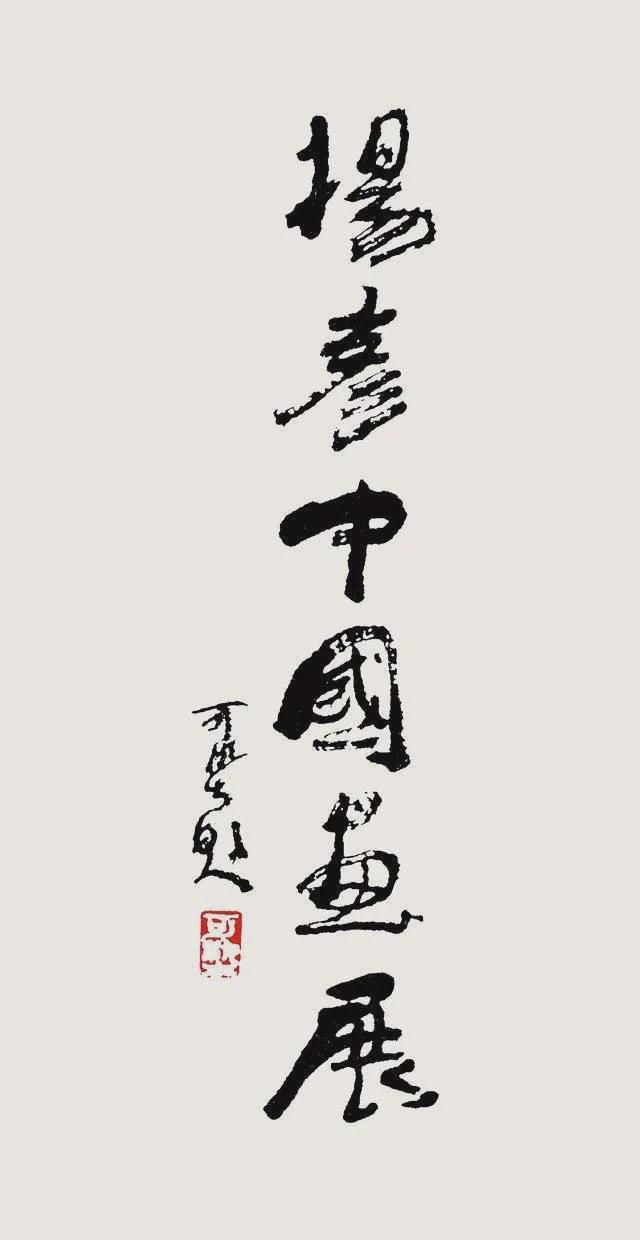 楊彥中國畫展
可染題
可染